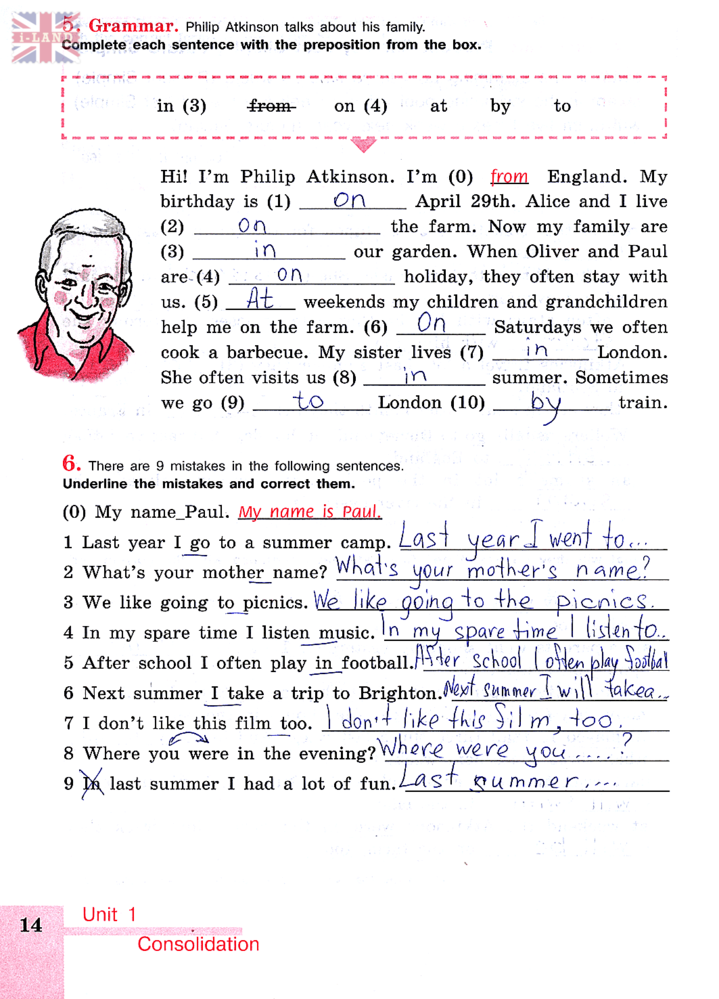 i-LAND
5. Grammar. Philip Atkinson talks about his family.
Complete each sentence with the preposition from the box.
in (3) from on (4) at by to
Hi! I'm Philip Atkinson. I'm (0) from England. My
birthday is (1) On April 29th. Alice and I live
(2) on the farm. Now my family are
(3) in our garden. When Oliver and Paul
are (4) on holiday, they often stay with
us. (5) At weekends my children and grandchildren
help me on the farm. (6) On Saturdays we often
cook a barbecue. My sister lives (7) in London.
She often visits us (8) in summer. Sometimes
we go (9) to London (10) by train.
6. There are 9 mistakes in the following sentences.
Underline the mistakes and correct them.
(0) My name_Paul. My name is Paul.
1 Last year I go to a summer camp. Last year I went to...
2 What's your mother name? What's your mother's name?
3 We like going to picnics. We like going to the picnics.
4 In my spare time I listen music. In my spare time I listen to..
5 After school I often play in football. After school I often play football
6 Next summer I take a trip to Brighton. Next summer I will take a...
7 I don't like this film too. I don't like this film, too.
8 Where you were in the evening? Where were you ....?
9 In last summer I had a lot of fun. Last summer....
14
Unit 1
Consolidation